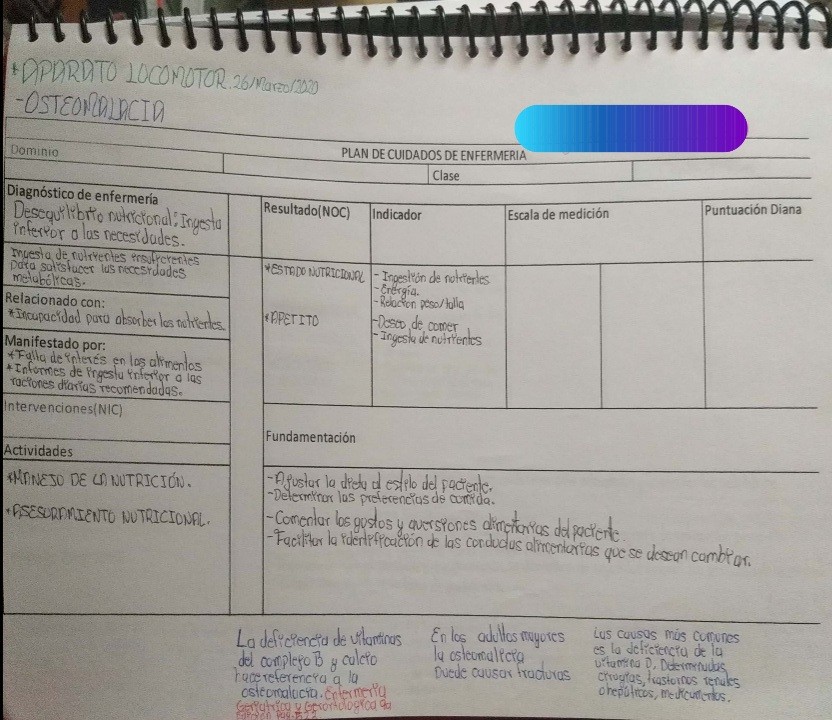 *APARATO LOCOMOTOR. 26/Marzo/2020
-OSTEOMALACIA
PLAN DE CUIDADOS DE ENFERMERIA
Dominio
Clase
Diagnóstico de enfermería
Desequilibrio nutricional: Ingesta
inferior a las necesidades.
Ingesta de nutrientes insuficientes
para satisfacer las necesidades
metabólicas.
Relacionado con:
*Incapacidad para absorber los nutrientes.
Manifestado por:
*Falta de interés en los alimentos
*Informes de ingesta inferior a las
raciones diarias recomendadas.
Resultado(NOC)
*ESTADO NUTRICIONAL
*APETITO
Indicador
-Ingestión de nutrientes
-Energía.
-Relación peso/talla
-Deseo de comer
-Ingesta de nutrientes
Escala de medición
Puntuación Diana
Intervenciones(NIC)
Actividades
*MANEJO DE LA NUTRICIÓN.
*ASESORAMIENTO NUTRICIONAL.
Fundamentación
-Ajustar la dieta al estilo del paciente.
-Determinar las preferencias de comida.
-Comentar los gustos y aversiones alimentarias del paciente.
-Facilitar la identificación de las conductas alimentarias que se desean cambiar.
La deficiencia de vitaminas
del complejo B y calcio
hace referencia a la
osteomalacia. Enfermería
Geriátrica y Gerontológica
En los adultos mayores
la osteomalacia
puede causar fracturas
Las causas más comunes
es la deficiencia de la
vitamina D, Determinadas
cirugías, trastornos renales
o hepáticos, medicamentos.